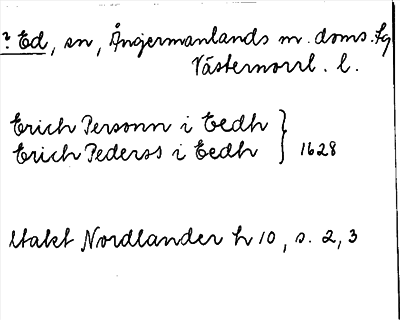 ? Ed, sn, Ångermanlands m. doms. fg
Västernorrl. l.
Erich Personn i Eedh
Erich Pederss i Eedh } 1628
Utakt Nordlander h 10, s. 2, 3